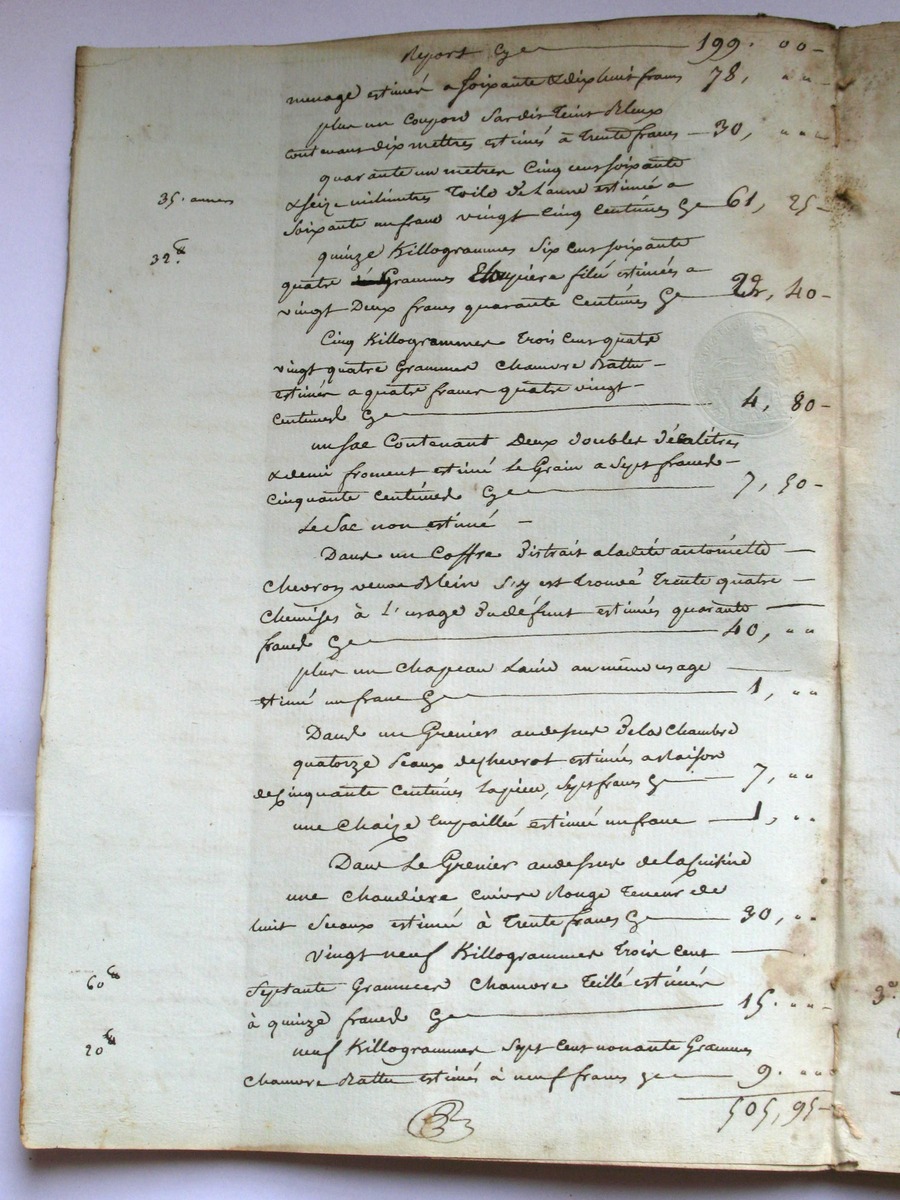 Report Cy 199. 00
menage estimés a soixante & dix huit francs 78, " "
plus un Coupon Sardis teint Bleux
Contenans dix mettres estimés à trente francs 30, " "
quarante un metres Cinq cens soixante
35. aunes & seize milimtres toile de Laune estimée a
soixante un franc vingt Cinq Centimes Cy 61, 25
32 ℔ quinze Killogrammes Six cens soixante
quatre Grammes filée estimées a
vingt Deux francs quarante Centimes Cy 22, 40
Cinq Killogrammes trois Cens quatre
vingt quatre Grammes chamvre Battu
estimée a quatre francs quatre vingt
Centimes Cy 4, 80
un sac Contenant Deux doubles décalitres
& demi froment estimé Le Grain a Sept francs
Cinquante Centimes Cy 7, 50
Le Sac non estimé
Dans un Coffre distrait a ladite antoinette
Chevron veuve Blein S'y est trouvé trente quatre
chemises à L'usage du défunt estimés quarante
francs Cy 40, " "
plus un chapeau Laine au même usage
estimé un franc Cy 1, " "
Dans un Grenier au dessus de La Chambre
quatorze Peaux de chevrot estimées a raison
de Cinquante Centimes la piece, Sept francs Cy 7, " "
une Chaize Empaillée estimée un franc 1, " "
Dans Le Grenier au dessus de la Cuisine
une Chaudiere Cuivre Rouge teneur de
huit Seaux estimée à trente francs Cy 30, " "
vingt neuf Killogrammes trois Cent
60 ℔ Septante Grammes Chamvre teillé estimés
à quinze francs Cy 15. " "
20 ℔ neuf Killogrammes Sept Cens nonante Grammes
Chamvre Battu estimés à neuf francs Cy 9. " "
505, 95
3°